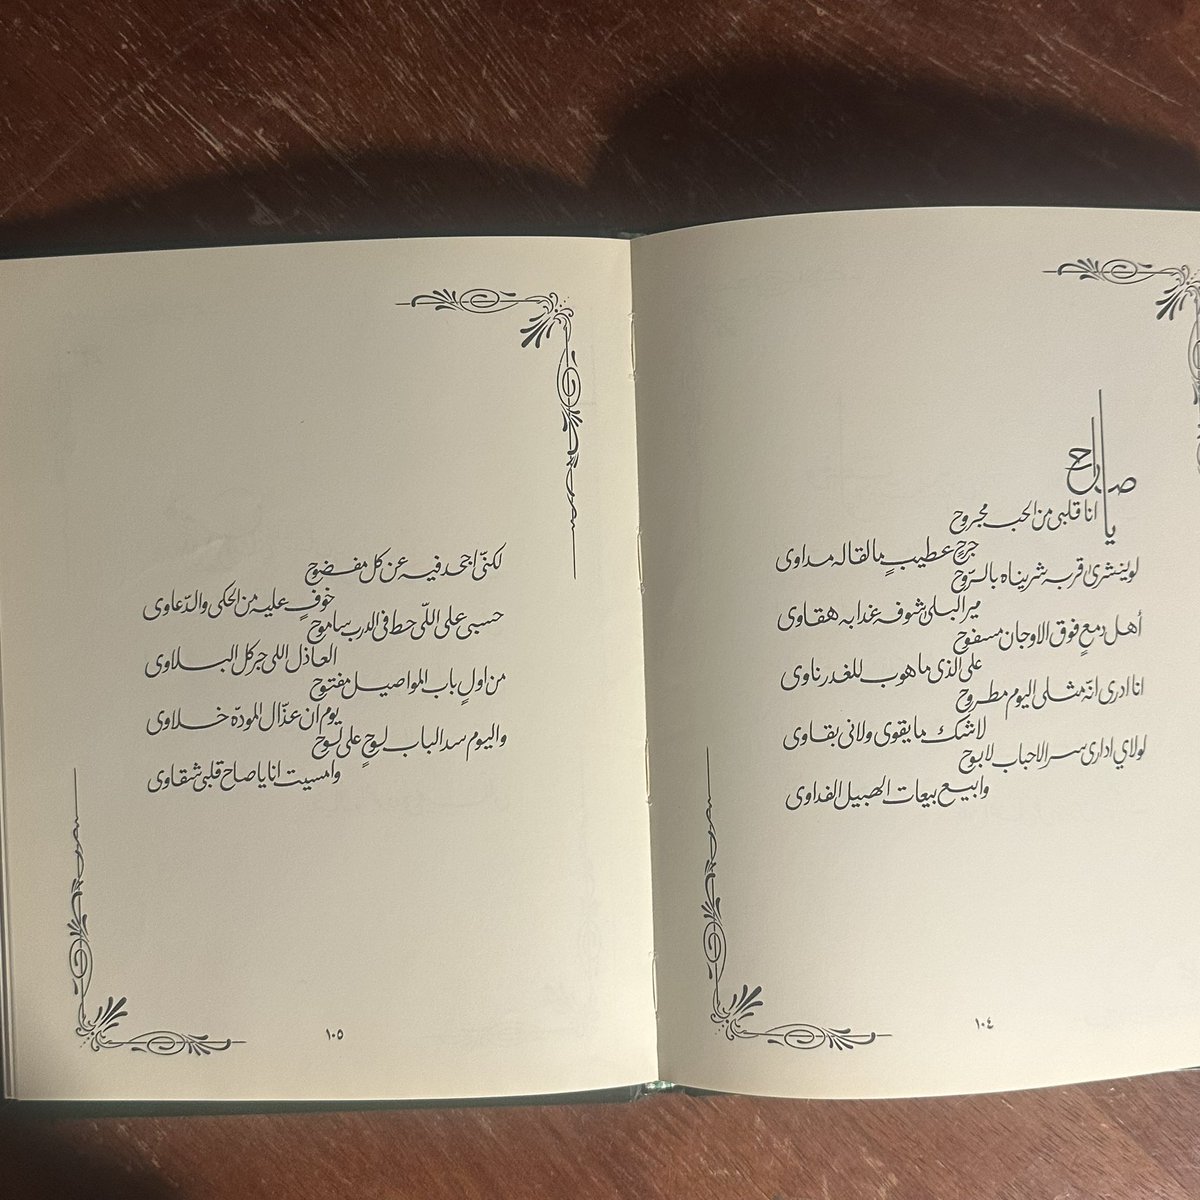 يا صاح
انا قلبي من الحب مجروح
جرحٍ عطيبٍ مالقاله مداوى
لو ينشرى قربه شريناه بالرّوح
مير البلى شوفه غدابه هقاوى
أهل دمعٍ فوق الاوجان مسفوح
على الذى ماهوب للغدر ناوى
انا ادرى انّه مثلى اليوم مطروح
لاشك مايقوى ولانى بقاوى
لولاي ادارى سر الاحباب لابوح
وابيع بيعات الهبيل الفداوى
١٠٤
لكنّى اجحد فيه عن كل مفضوح
خوفٍ عليه من الحكى والدّعاوى
حسبى على اللّى حط فى الدرب ساموح
العاذل اللى جر كل البلاوى
من اولٍ باب المواصيل مفتوح
يوم ان عذّال المودّه خلاوى
واليوم سد الباب لوحٍ على لوح
وامسيت انا ياصاح قلبى شقاوى
١٠٥